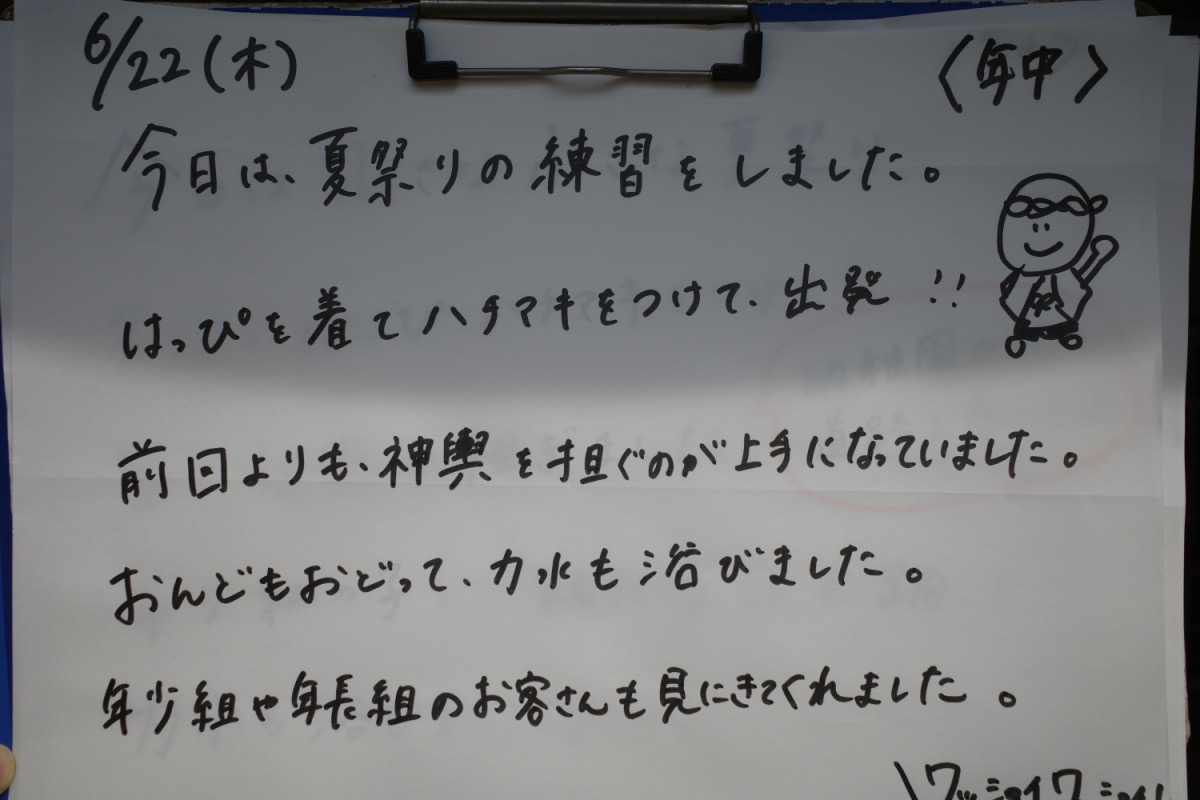 6/22(木)
〈年中〉
今日は、夏祭りの練習をしました。
はっぴを着てハチマキをつけて、出発!!
前回よりも、神輿を担ぐのが上手になっていました。
おんどもおどって、力水も浴びました。
年少組や年長組のお客さんも見にきてくれました。
\ワッショイワッショイ/